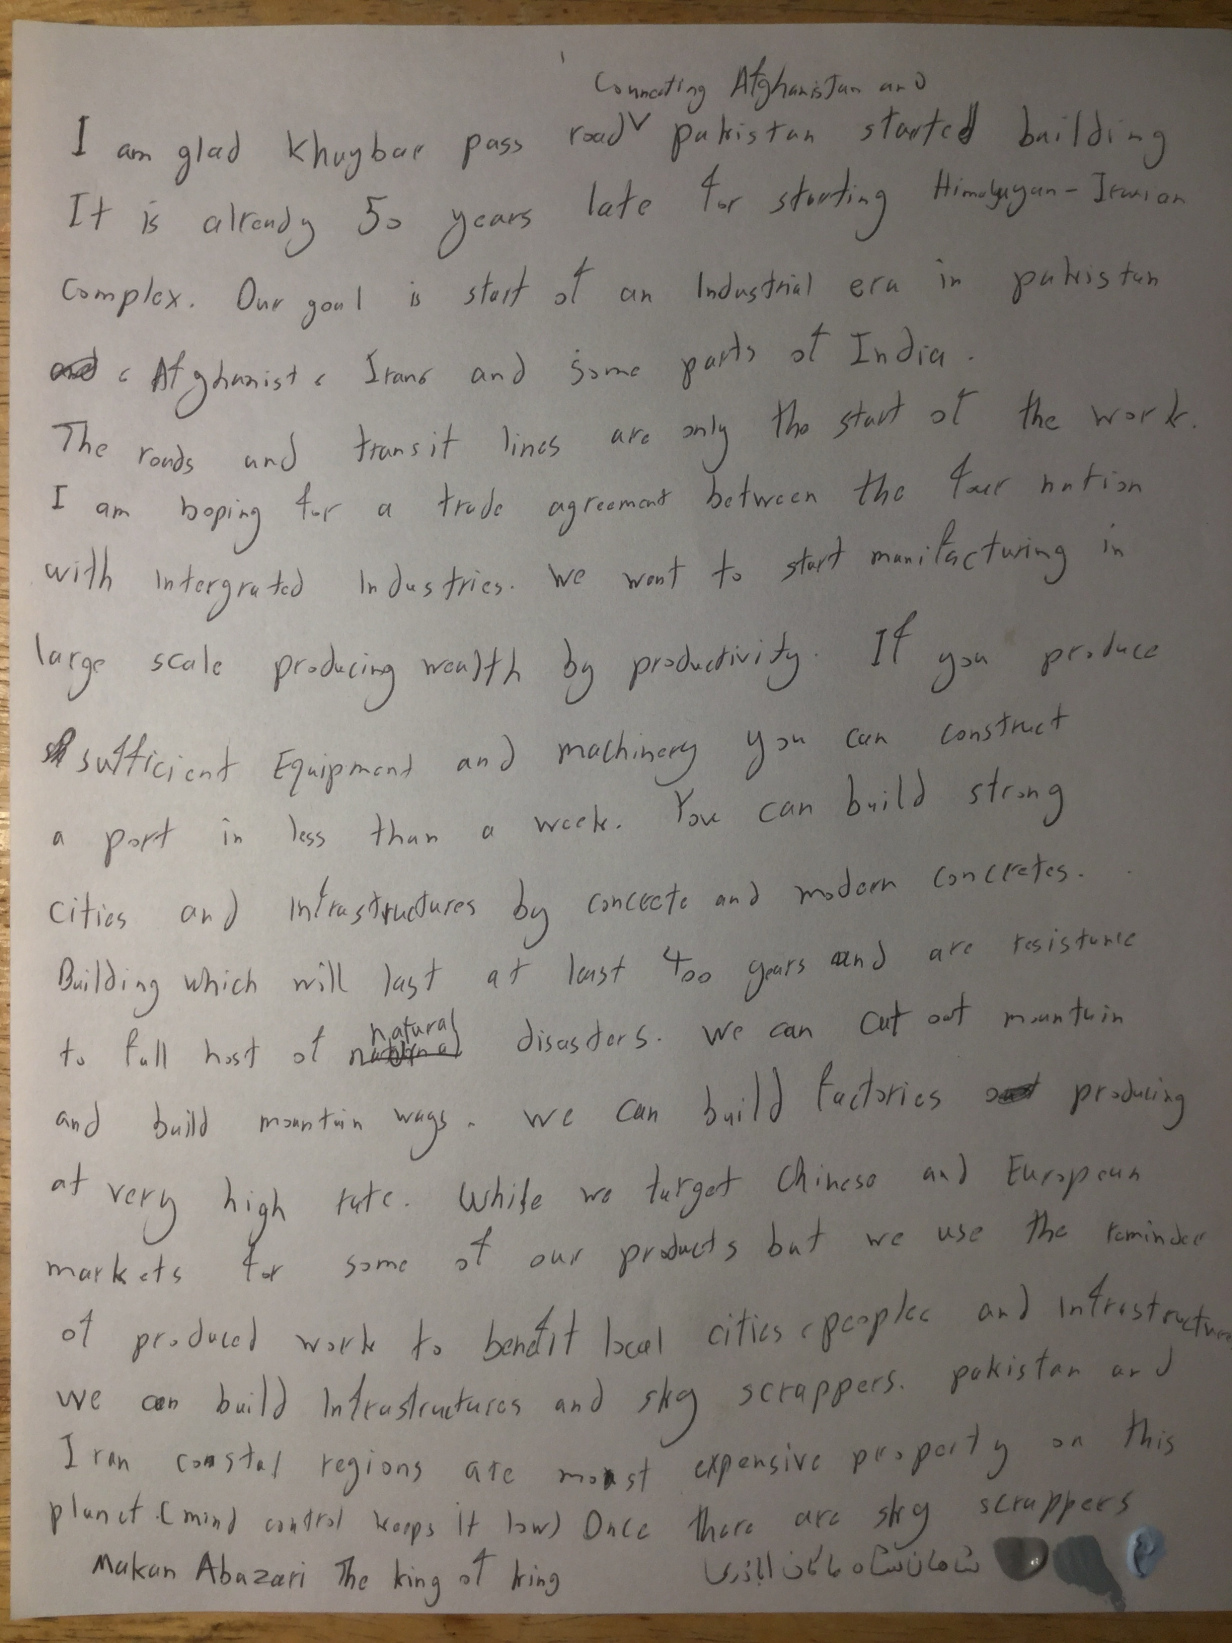 Connecting Afghanistan and
I am glad Khaybar pass road pakistan started building
It is already 50 years late for starting Himalyayan - Iranian
complex. Our goal is start of an Industrial era in pakistan
، Afghanist ، Iran، and some parts of India.
The roads and transit lines are only the start of the work.
I am hoping for a trade agreement between the four nation
with Intergrated Industries. We want to start manifacturing in
large scale producing wealth by productivity. If you produce
sufficient Equipment and machinery you can construct
a port in less than a week. You can build strong
cities and Infrastructures by concecte and modern concretes.
Building which will last at last 400 years and are resistance
to full host of natural disasters. We can cut out mountain
and build mountain ways. We can build factories producing
at very high rate. While we target Chinese and European
markets for some of our products but we use the reminder
of produced work to benefit local cities ، people، and Infrastructure
We can build Infrastructures and sky scrappers. pakistan and
Iran coastal regions are most expensive property on this
planet. (mind control keeps it low) Once there are sky scrappers
Makan Abazari The king of king شاهان‌شاه ماکان اباذری